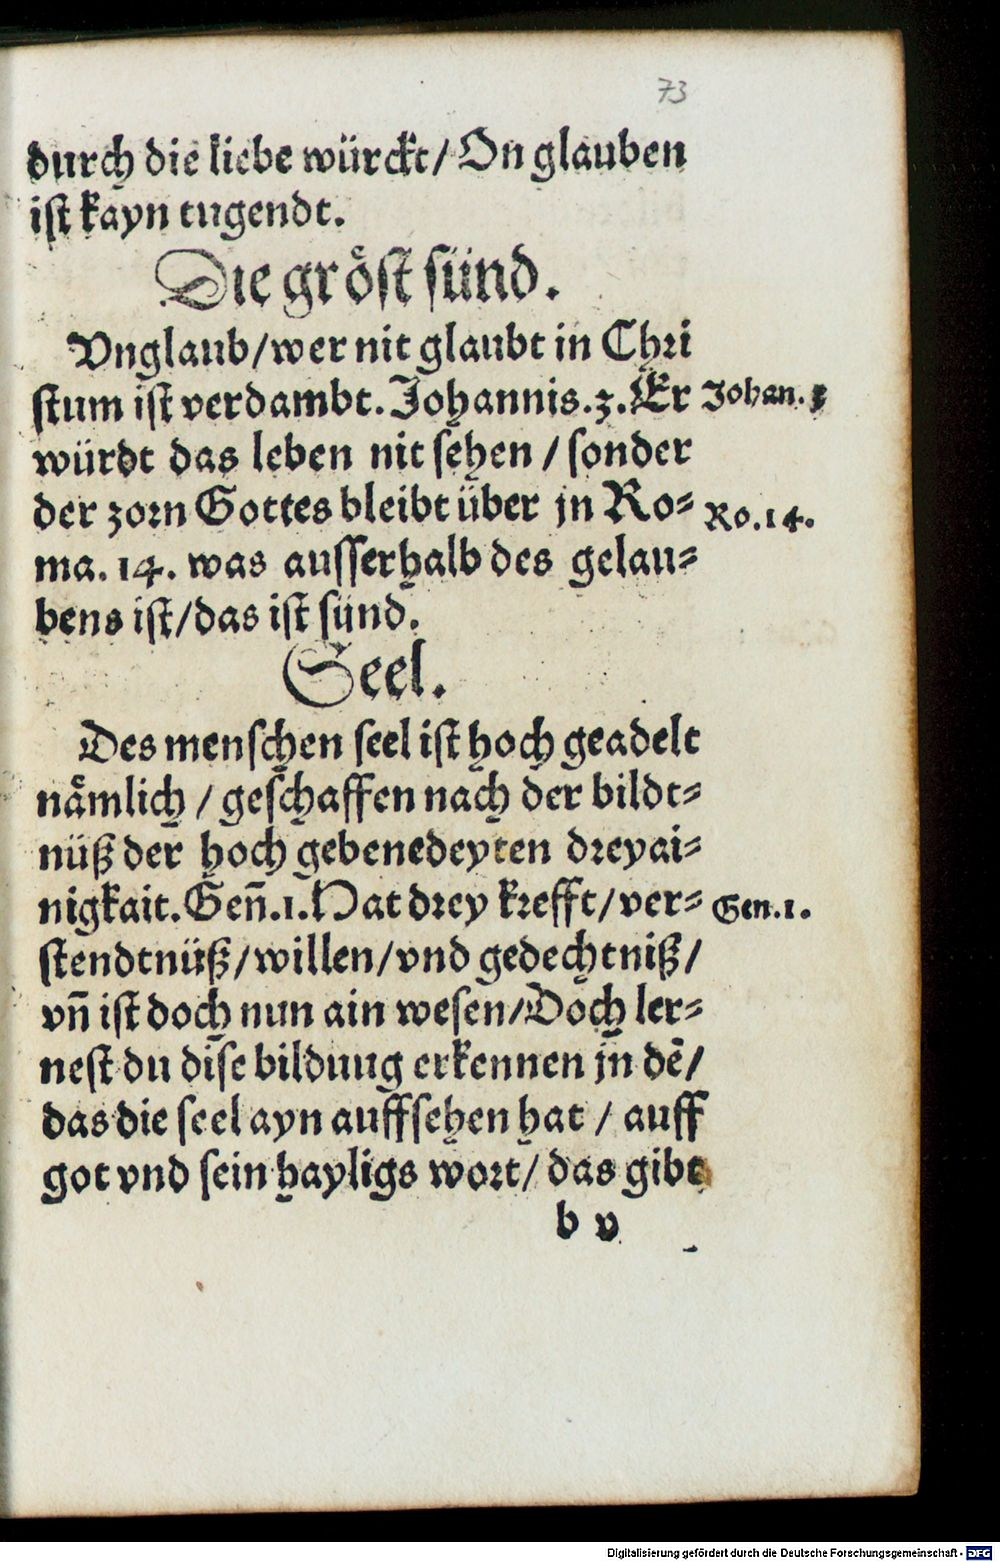 73
durch die liebe würckt/ On glauben
ist kayn tugendt.
Die gröst sünd.
Vnglaub/wer nit glaubt in Chri
stum ist verdambt. Johannis.3. Er Johan. 3
würdt das leben nit sehen / sonder
der zorn Gottes bleibt über jn Ro= Ro.14.
ma. 14. was ausserhalb des gelau=
bens ist/das ist sünd.
Seel.
Des menschen seel ist hoch geadelt
nämlich / geschaffen nach der bildt=
nüß der hoch gebenedeyten dreyai=
nigkait. Geñ.1. Hat drey krefft/ver= Gen.1.
stendtnüß/willen/vnd gedechtniß/
vñ ist doch nun ain wesen/Doch ler=
nest du dise bildung erkennen jn dē/
das die seel ayn auffsehen hat / auff
got vnd sein hayligs wort/ das gibt
b v
Digitalisierung gefördert durch die Deutsche Forschungsgemeinschaft - DFG